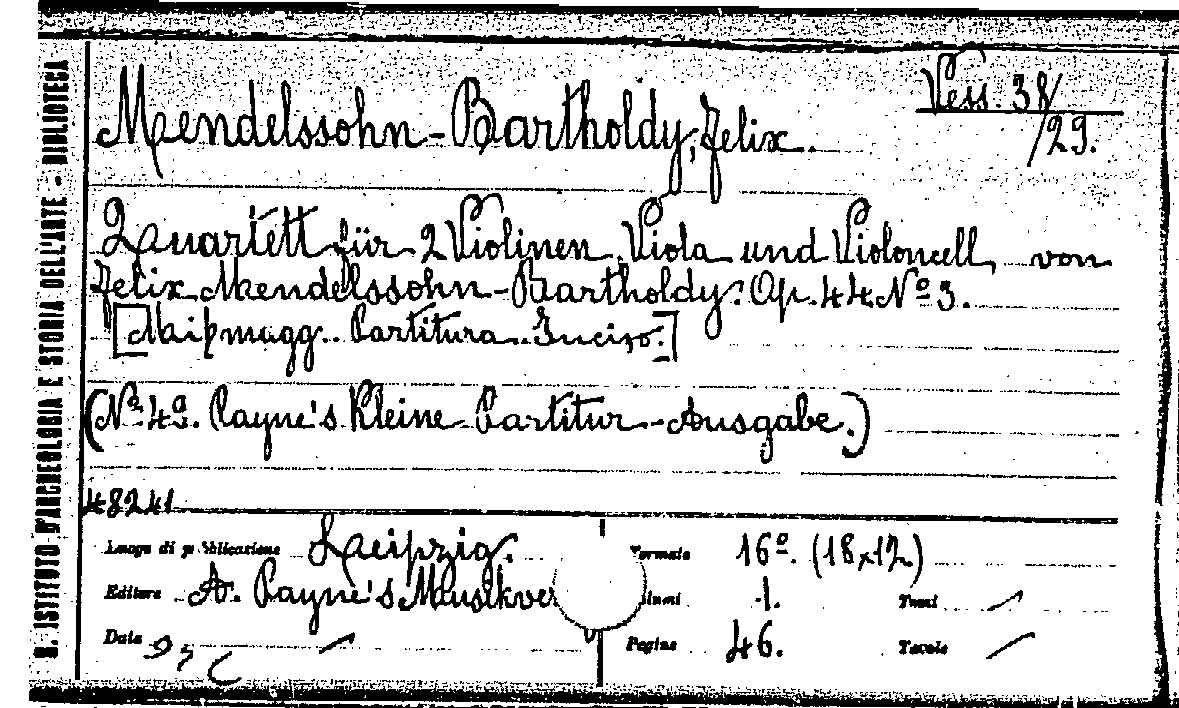 Mendelssohn-Bartholdy, Felix.
Vess. 38/
/29.
Quartett für 2 Violinen, Viola und Violoncell, von
Felix Mendelssohn-Bartholdy. Op. 44 Nº 3.
[Mi♭ magg. Partitura. Inciso.]
(Nº 49. Payne's Kleine Partitur-Ausgabe.)
48241
Luogo di pubblicazione Leipzig. Formato 16º. (18x12.)
Editore A. Payne's Musikve 1. Tomi /
Data / Pagine 46. Tavole /
R. ISTITUTO D'ARCHEOLOGIA E STORIA DELL'ARTE - BIBLIOTECA